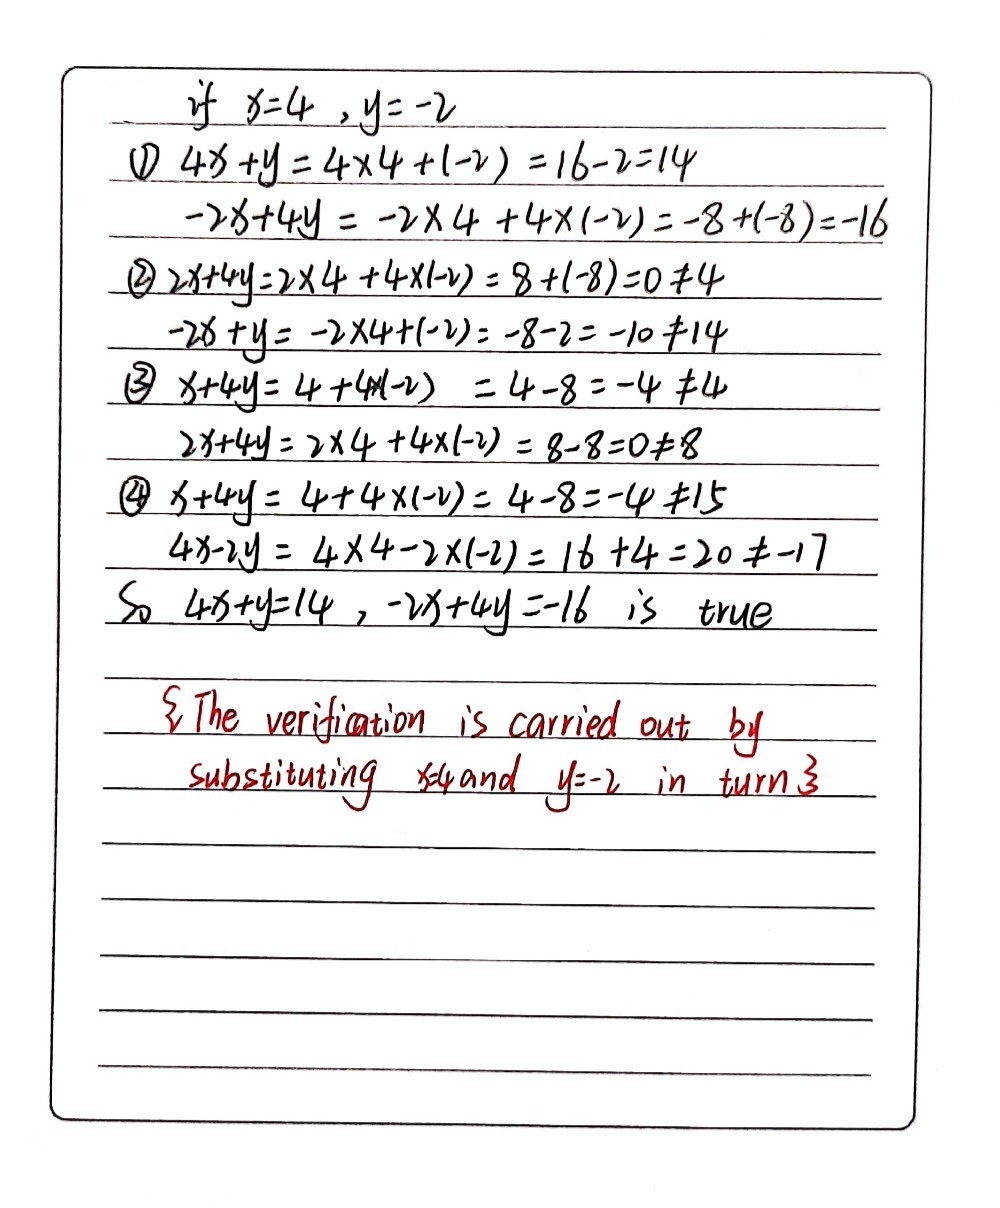 if x=4 , y=-2
① 4x+y=4×4+(-2)=16-2=14
-2x+4y=-2×4+4×(-2)=-8+(-8)=-16
② 2x+4y=2×4+4×(-2)=8+(-8)=0≠4
-2x+y=-2×4+(-2)=-8-2=-10≠14
③ x+4y=4+4×(-2) =4-8=-4≠4
2x+4y=2×4+4×(-2)=8-8=0≠8
④ x+4y=4+4×(-2)=4-8=-4≠15
4x-2y=4×4-2×(-2)=16+4=20≠-17
So 4x+y=14 , -2x+4y=-16 is true
{The verification is carried out by
substituting x=4 and y=-2 in turn}